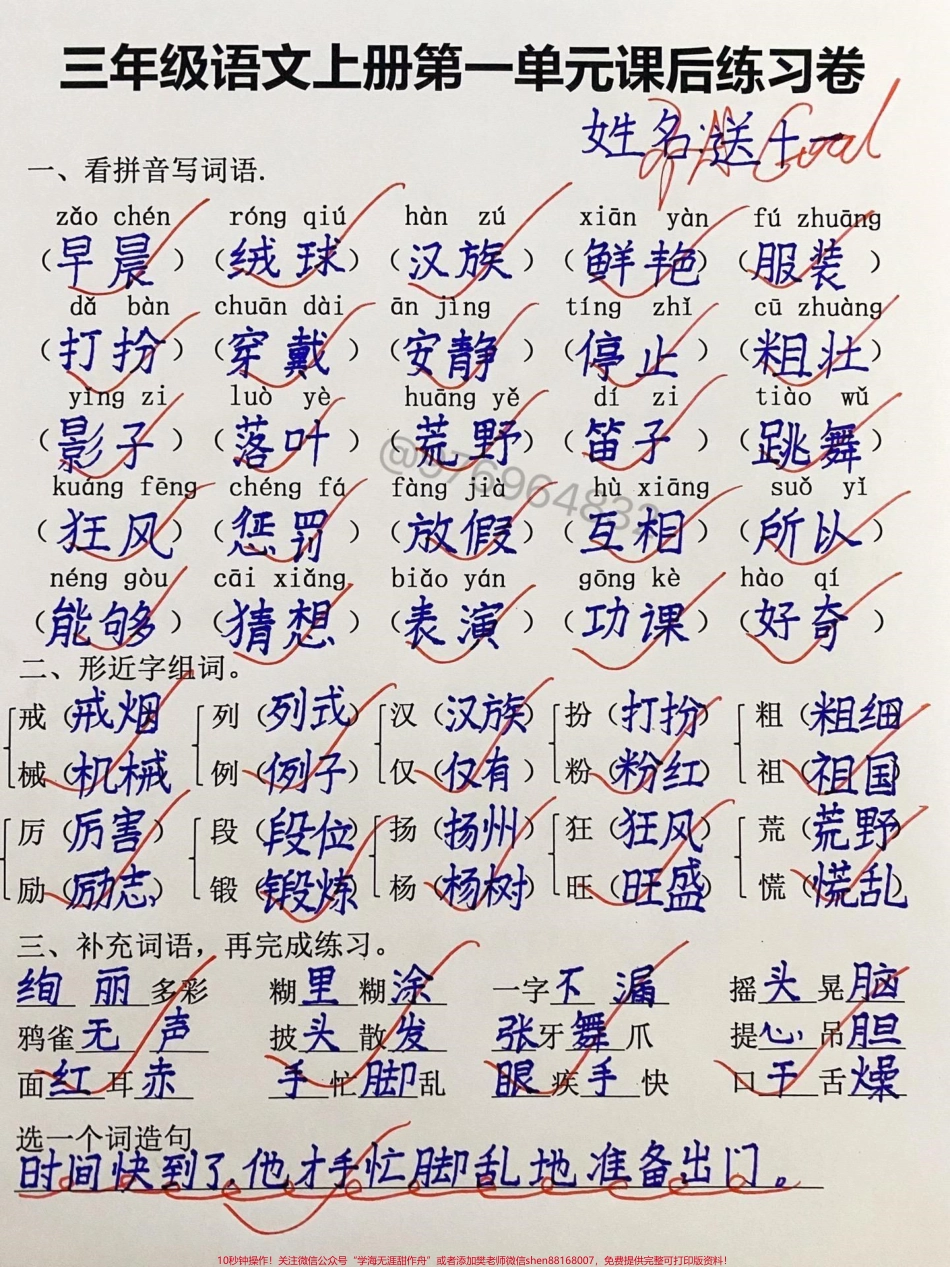 三年级语文上册第一单元课后练习卷
姓名:送十一 Good
一、看拼音写词语.
zǎo chén róng qiú hàn zú xiān yàn fú zhuāng
（早晨）（绒球）（汉族）（鲜艳）（服装）
dǎ bàn chuān dài ān jìng tíng zhǐ cū zhuàng
（打扮）（穿戴）（安静）（停止）（粗壮）
yǐng zi luò yè huāng yě dí zi tiào wǔ
（影子）（落叶）（荒野）（笛子）（跳舞）
kuáng fēng chéng fá fàng jià hù xiāng suǒ yǐ
（狂风）（惩罚）（放假）（互相）（所以）
néng gòu cāi xiǎng biǎo yán gōng kè hào qí
（能够）（猜想）（表演）（功课）（好奇）
二、形近字组词。
戒（戒烟 列（列式）汉（汉族）扮（打扮）粗（粗细
械（机械 例（例子）仅（仅有）粉（粉红）祖（祖国）
厉（厉害）段（段位）扬（扬州）狂（狂风）荒（荒野
励（励志）锻（锻炼 杨（杨树）旺（旺盛）慌（慌乱
三、补充词语，再完成练习。
绚丽多彩 糊里糊涂 一字不漏 摇头晃脑
鸦雀无声 披头散发 张牙舞爪 提心吊胆
面红耳赤 手忙脚乱 眼疾手快 口干舌燥
选一个词造句
时间快到了,他才手忙脚乱地准备出门。
@976964832
10秒钟操作！关注微信公众号“学海无涯甜作舟”或者添加樊老师微信shen88168007，免费提供完整可打印版资料！